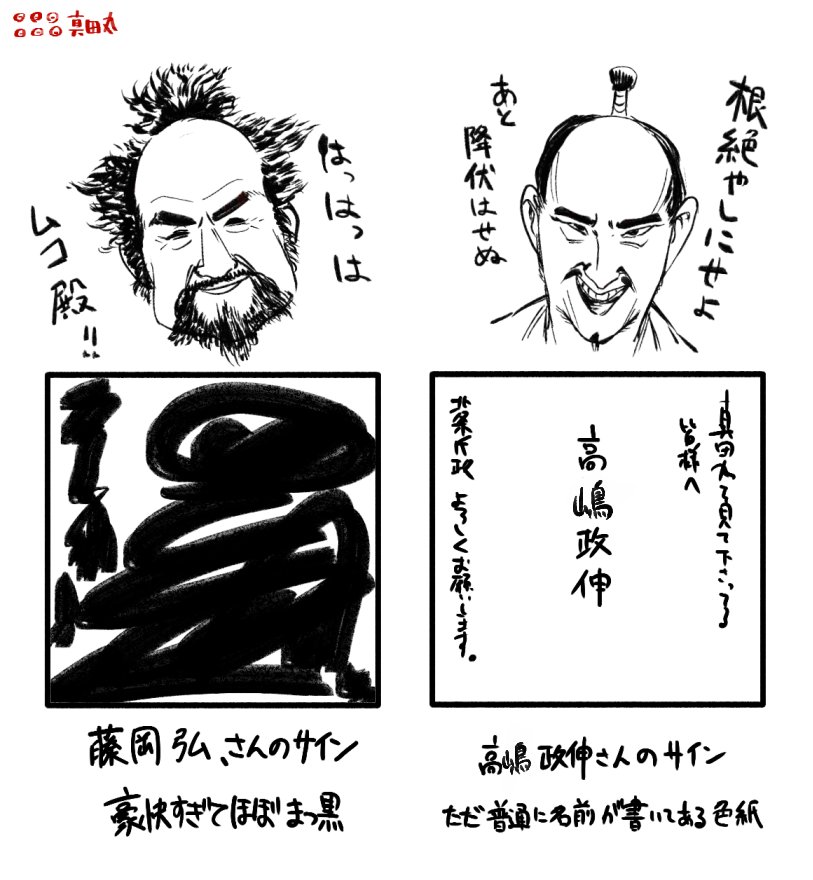 真田丸
はっはっは
ムコ殿!!
根絶やしにせよ
あと
降伏はせぬ
真田丸を見て下さってる
皆様へ
高嶋政伸
北条氏政 よろしくお願いします。
藤岡弘、さんのサイン
豪快すぎてほぼまっ黒
高嶋政伸さんのサイン
ただ普通に名前が書いてある色紙